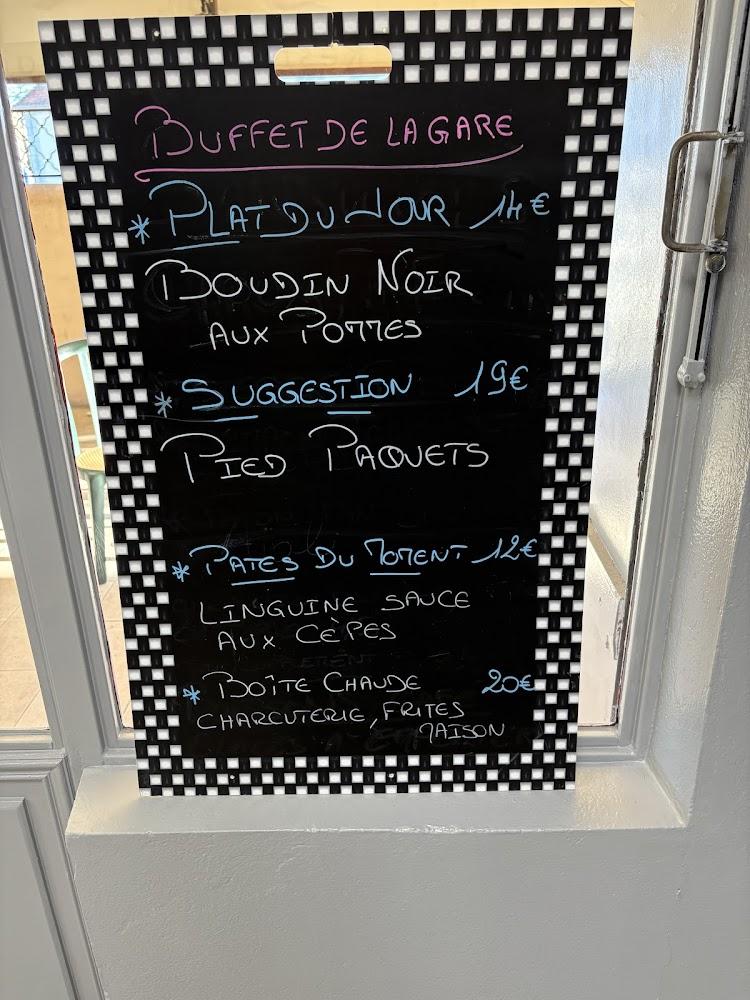 BUFFET DE LA GARE
* PLAT DU JOUR 14€
BOUDIN NOIR
AUX POMMES
* SUGGESTION 19€
PIED PAQUETS
* PATES DU MOMENT 12€
LINGUINE SAUCE
AUX CÈPES
* BOÎTE CHAUDE 20€
CHARCUTERIE, FRITES
MAISON